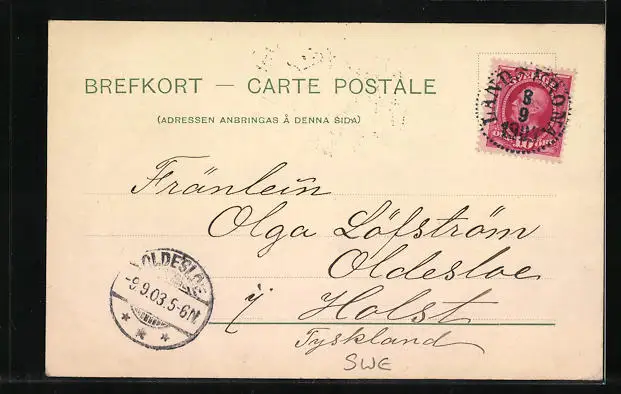 BREFKORT — CARTE POSTALE
(ADRESSEN ANBRINGAS Å DENNA SIDA)
LANDSKRONA
8
9
Fränlein
Olga Löfström
Oldesloe
i/ Holst
Tyskland
SWE
OLDESLOE
-9.9.03.5-6N.